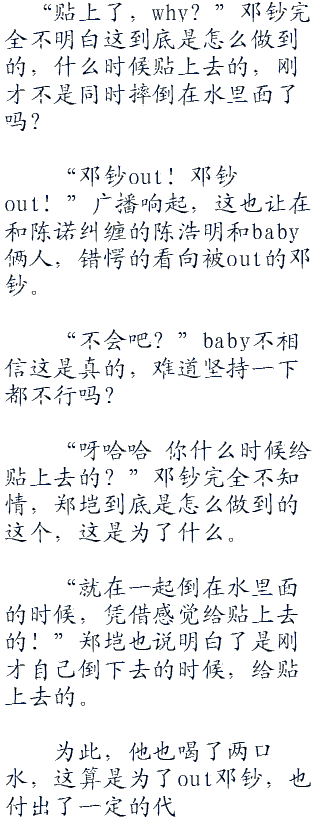 “贴上了，why？”邓钞完
全不明白这到底是怎么做到
的，什么时候贴上去的，刚
才不是同时摔倒在水里面了
吗？
“邓钞out！邓钞
out！”广播响起，这也让在
和陈诺纠缠的陈浩明和baby
俩人，错愕的看向被out的邓
钞。
“不会吧？”baby不相
信这是真的，难道坚持一下
都不行吗？
“呀哈哈 你什么时候给
贴上去的？”邓钞完全不知
情，郑垲到底是怎么做到的
这个，这是为了什么。
“就在一起倒在水里面
的时候，凭借感觉给贴上去
的！”郑垲也说明白了是刚
才自己倒下去的时候，给贴
上去的。
为此，他也喝了两口
水，这算是为了out邓钞，也
付出了一定的代